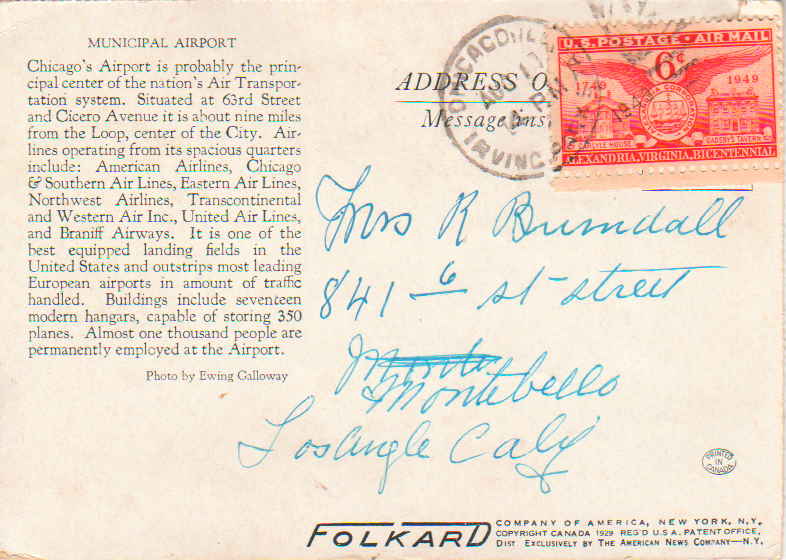 MUNICIPAL AIRPORT
Chicago's Airport is probably the prin-
cipal center of the nation's Air Transpor-
tation system. Situated at 63rd Street
and Cicero Avenue it is about nine miles
from the Loop, center of the City. Air-
lines operating from its spacious quarters
include: American Airlines, Chicago
& Southern Air Lines, Eastern Air Lines,
Northwest Airlines, Transcontinental
and Western Air Inc., United Air Lines,
and Braniff Airways. It is one of the
best equipped landing fields in the
United States and outstrips most leading
European airports in amount of traffic
handled. Buildings include seventeen
modern hangars, capable of storing 350
planes. Almost one thousand people are
permanently employed at the Airport.
Photo by Ewing Galloway
ADDRESS O
Message ins
CHICAGO, ILL.
AUG 17
PM
IRVING
U.S. POSTAGE • AIR MAIL
6¢
1949
GADSBYS TAVERN
ALEXANDRIA, VIRGINIA, BICENTENNIAL
Mrs R Brundall
841 6 st-street
Montebello
Los Angle Calif
PRINTED
IN
CANADA
FOLKARD
COMPANY OF AMERICA, NEW YORK, N.Y.
COPYRIGHT CANADA 1929 REG'D U.S.A. PATENT OFFICE.
DIST. EXCLUSIVELY BY THE AMERICAN NEWS COMPANY—N.Y.